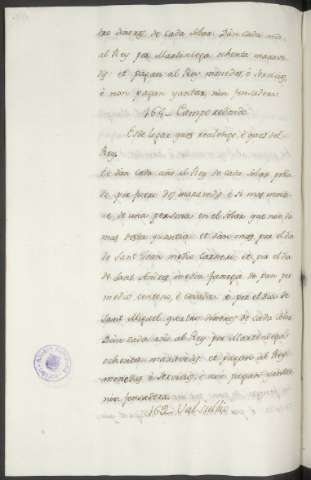 tro dineros de cada solar. Dan cada año
al Rey por Martiniega ochenta marave
dis et pagan al Rey monedas, é servicios,
é non pagan yantar, nin fonsadera.
161 - Campo redondo
Este logar que es realengo, é que es del
Rey.
Et dan cada año al Rey de cada solar pobla
do por furcio dos maravedis, é si mas mora
re de una persona en el solar que non dá
mas desta quantia et dan mas por el dia
de Sant Joan medio carnero, et por el dia
de Sant Andres media fanega de pan por
medio centeno, é cevada et por el dia de
Sant Miguel quatro dineros de cada solar
Dan cada año al Rey por Martiniega
ochenta maravedis et pagan al Rey
monedas, é servicios, é non pagan yantar
nin fonsadera.
162 - Val